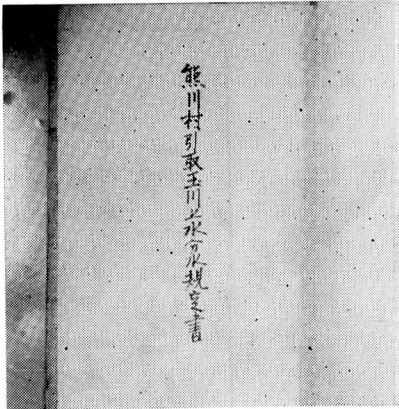 熊川村引取玉川上水分水規定書